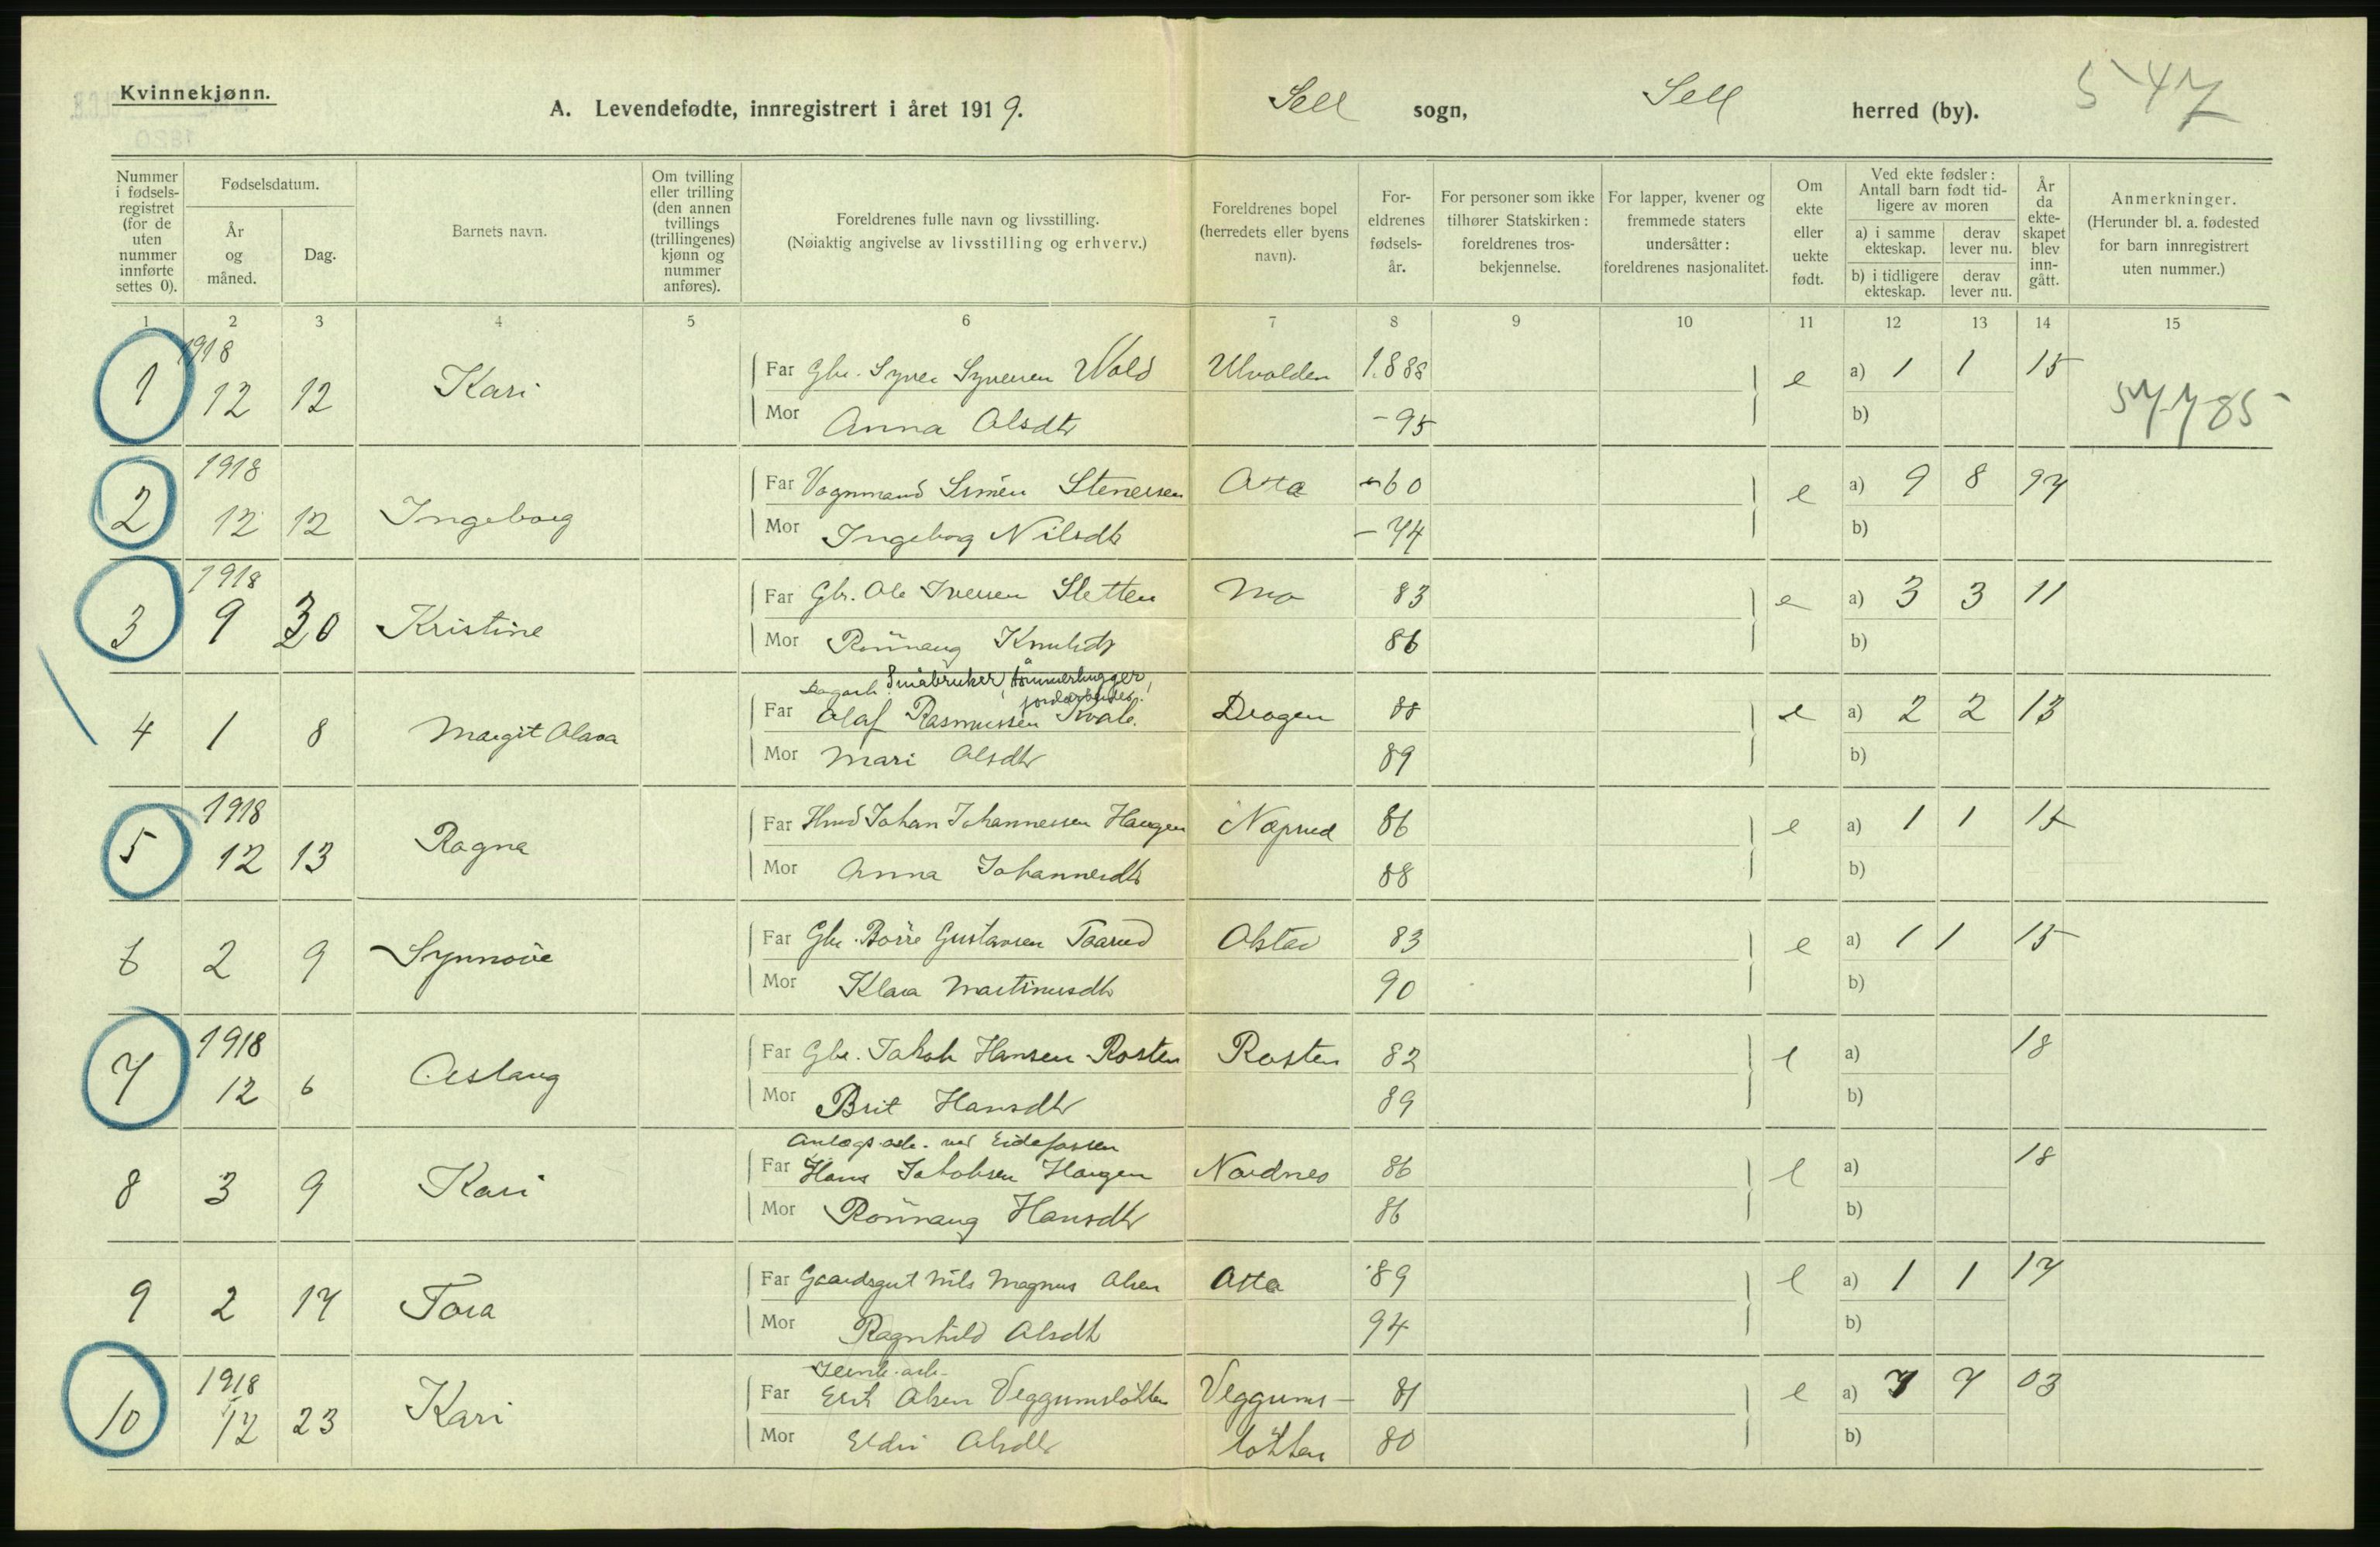 Kvinnekjønn.
A. Levendefødte, innregistrert i året 1919. Sell sogn, Sell herred (by). 547
Nummer i fødselsregistret (for de uten nummer innførte settes 0).
Fødselsdatum.
År og måned.
Dag.
Barnets navn.
Om tvilling eller trilling (den annen tvillings (trillingenes) kjønn og nummer anføres).
Foreldrenes fulle navn og livsstilling.
(Nøiaktig angivelse av livsstilling og erhverv.)
Foreldrenes bopel (herredets eller byens navn).
Foreldrenes fødselsår.
For personer som ikke tilhører Statskirken: foreldrenes trosbekjennelse.
For lapper, kvener og fremmede staters undersåtter: foreldrenes nasjonalitet.
Om ekte eller uekte født.
Ved ekte fødsler: Antall barn født tidligere av moren
a) i samme ekteskap.
derav lever nu.
b) i tidligere ekteskap.
derav lever nu.
År da ekteskapet blev inngått.
Anmerkninger.
(Herunder bl. a. fødested for barn innregistrert uten nummer.)
1 2 3 4 5 6 7 8 9 10 11 12 13 14 15
1918
1 12 12 Kari Far Gbr. Syver Syversen Wold Ulvolden 1888 e a) 1 1 15
Mor Anna Olsdtr - 95 b)
57785
1918
2 12 12 Ingeborg Far Vognmand Simen Stenersen Otta - 60 e a) 9 8 97
Mor Ingebog Nilsdtr - 74 b)
1918
3 9 30 Kristine Far Gbr. Ole Iversen Sletten Mo 83 e a) 3 3 11
Mor Rönnaug Knutsdtr 86 b)
Dagarb. Småbruker, tömmerhugger, jordarbeider.
4 1 8 Margit Olava Far Olaf Rasmussen Kvale. Drogen 88 e a) 2 2 13
Mor Mari Olsdtr 89 b)
1918
5 12 13 Ragna Far Hmd Johan Johannessen Haugen Noprud 86 e a) 1 1 15
Mor Anna Johannesdtr 88 b)
6 2 9 Synnöve Far Gbr. Börre Gustavsen Taarud Olstad 83 e a) 1 1 15
Mor Klara Martinusdtr 90 b)
1918
7 12 6 Aslaug Far Gbr. Jakob Hansen Rosten Rosten 82 e a) 18
Mor Brit Hansdtr 89 b)
Anlægsarb. ved Eidefossen
8 3 9 Kari Far Hans Jakobsen Haugen Nordnes 86 e a) 18
Mor Rönnaug Hansdtr 86 b)
9 2 17 Tora Far Gaardsgut Nils Magnus Olsen Otta 89 e a) 1 1 17
Mor Ragnhild Olsdtr 94 b)
1918
10 12 23 Kari Far Erik Olsen Veggumslökken Veggums- 81 e a) 7 7 03
Mor Eldri Olsdtr lökken 80 b)